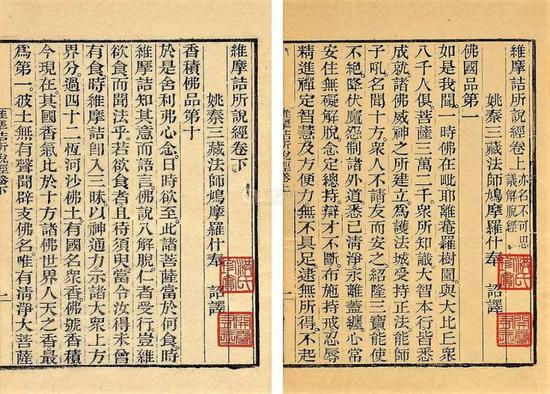 維摩詰所說經卷上 亦名不可思議解脫經
姚秦三藏法師鳩摩羅什奉 詔譯
佛國品第一
如是我聞一時佛在毗耶離菴羅樹園與大比丘衆
八千人俱菩薩三萬二千衆所知識大智本行皆悉
成就諸佛威神之所建立爲護法城受持正法能師
子吼名聞十方衆人不請友而安之紹隆三寶能使
不絕降伏魔怨制諸外道悉已清淨永離蓋纏心常
安住無礙解脫念定總持辯才不斷布施持戒忍辱
精進禪定智慧及方便力無不具足逮無所得不起
維摩詰所說經卷上
一
維摩詰所說經卷下
姚秦三藏法師鳩摩羅什奉 詔譯
香積佛品第十
於是舍利弗心念日時欲至此諸菩薩當於何食時
維摩詰知其意而語言佛說八解脫仁者受行豈雜
欲食而聞法乎若欲食者且待須臾當令汝得未曾
有食時維摩詰卽入三昧以神通力示諸大衆上方
界分過四十二恆河沙佛土有國名衆香佛號香積
今現在其國香氣比於十方諸佛世界人天之香最
爲第一彼土無有聲聞辟支佛名唯有清淨大菩薩
維摩詰所說經卷下
一